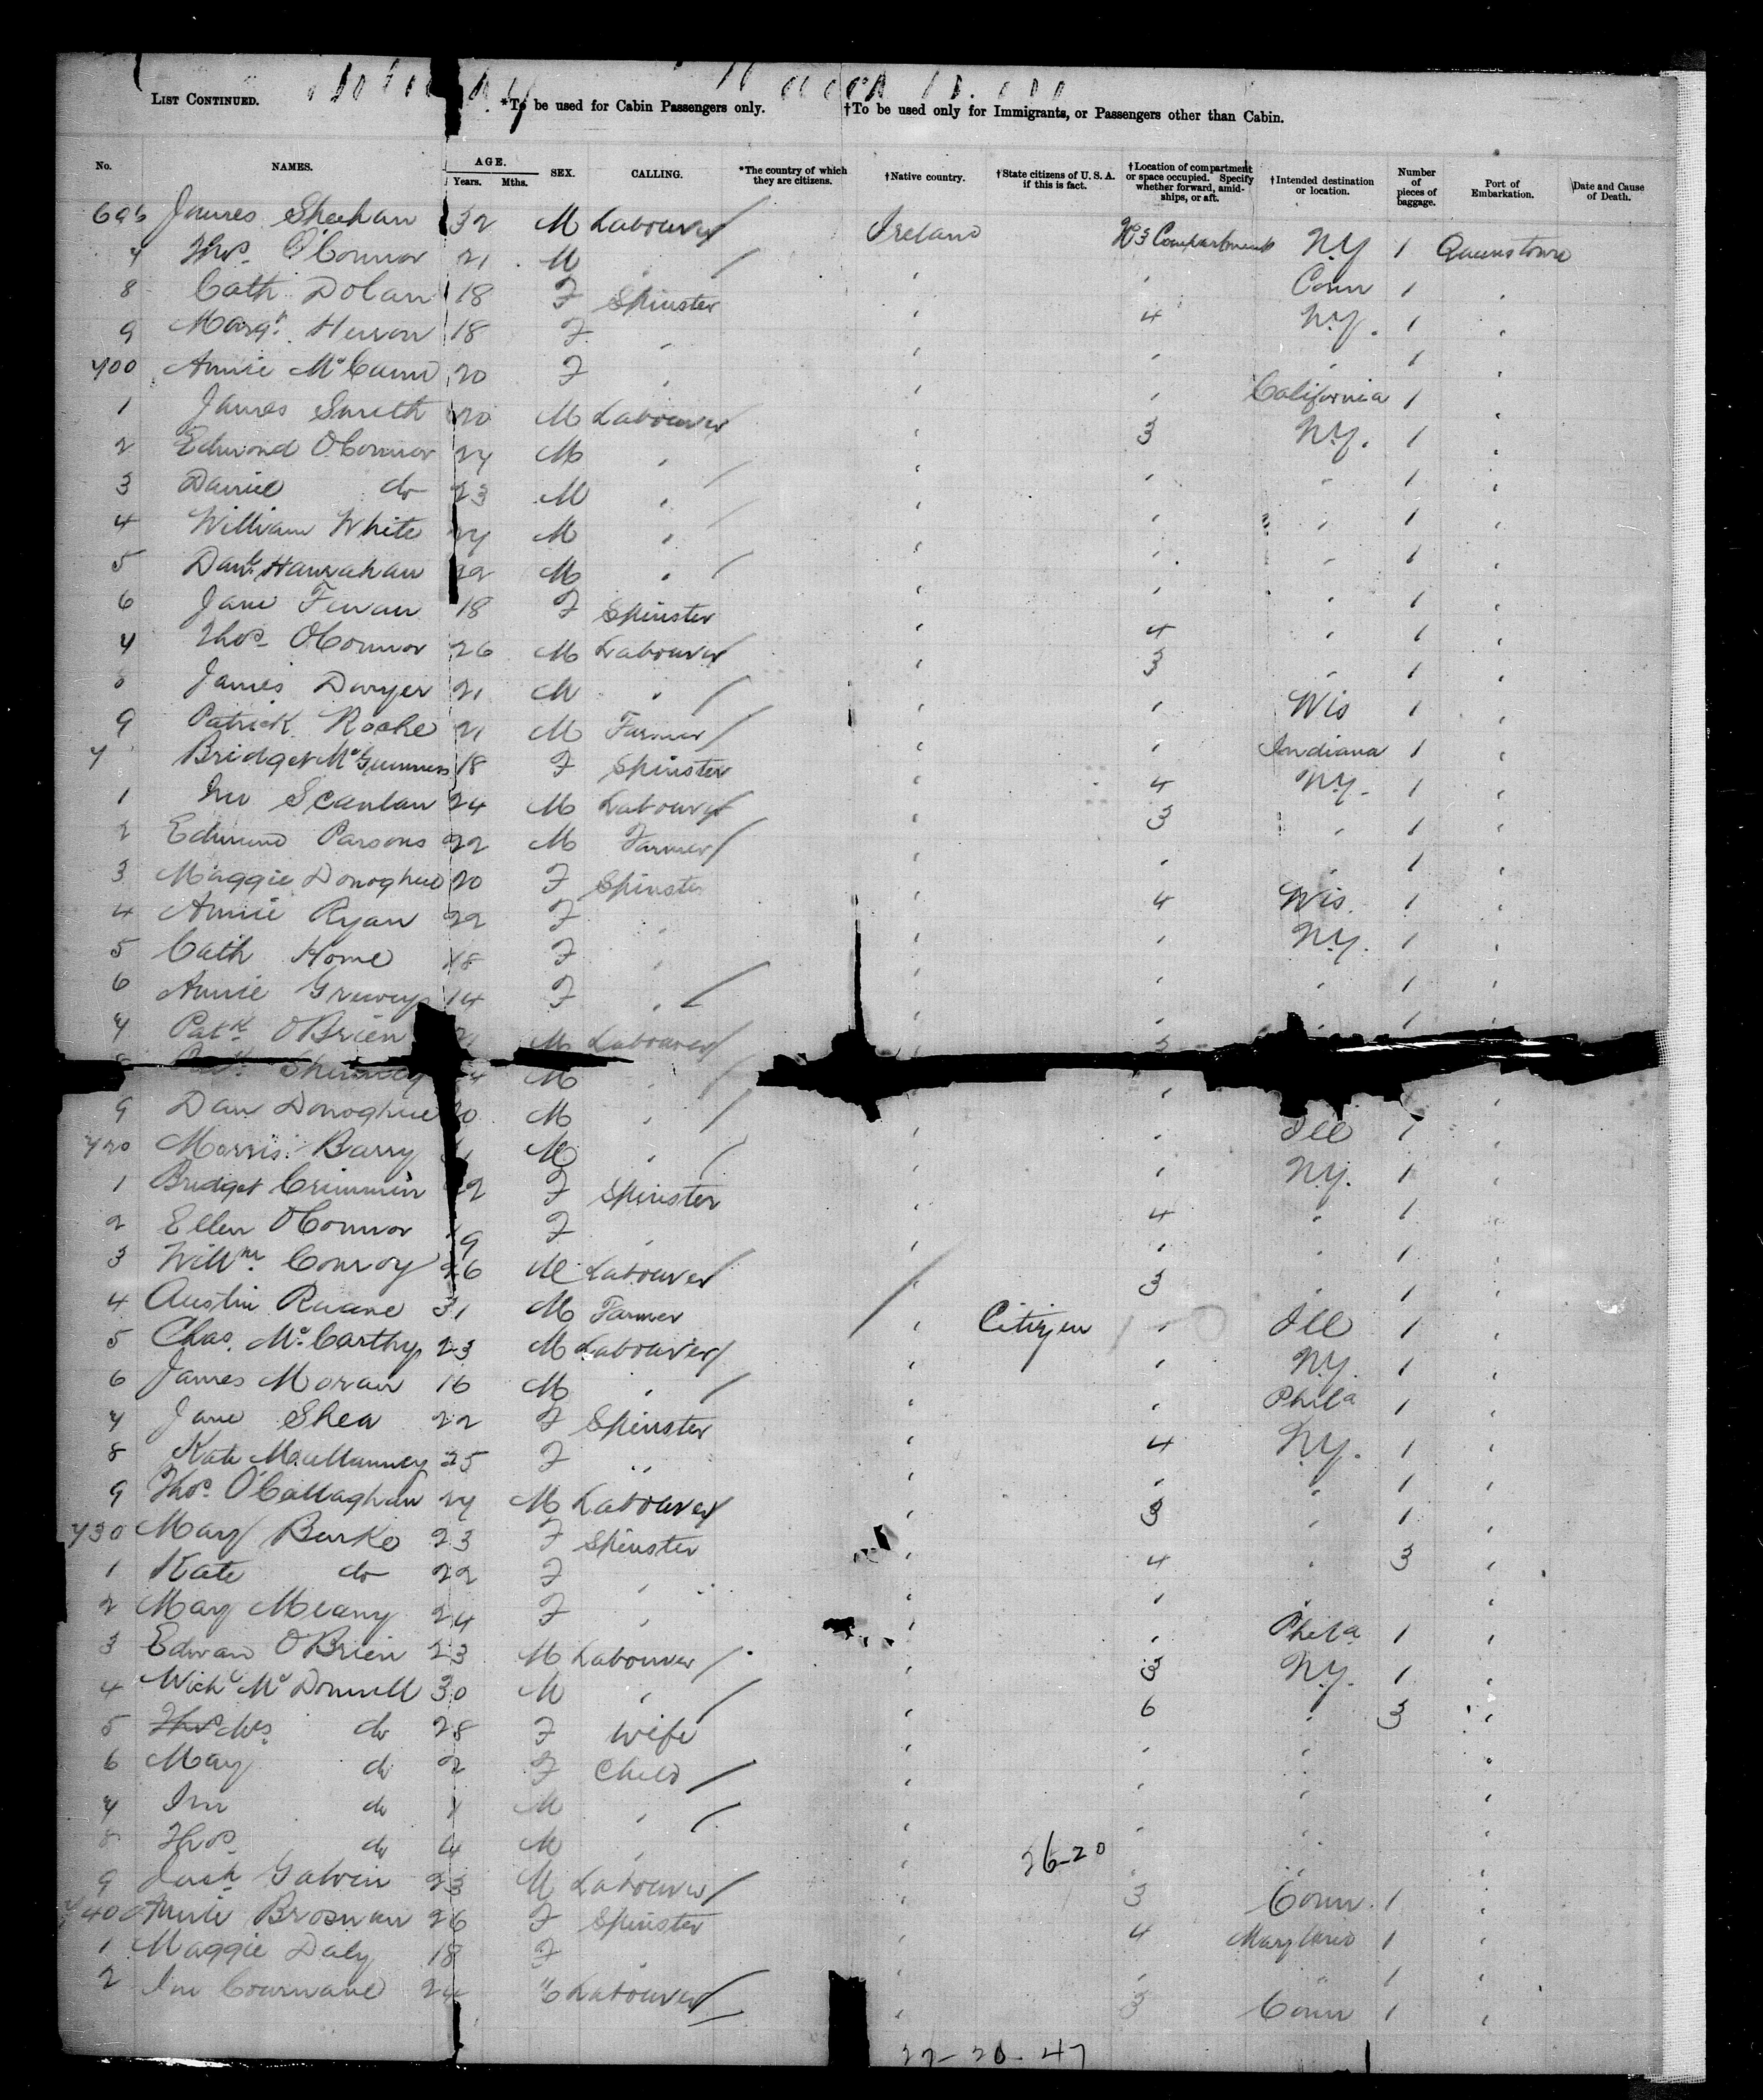 LIST CONTINUED.
*To be used for Cabin Passengers only. †To be used only for Immigrants, or Passengers other than Cabin.
No. NAMES. AGE. Years. Mths. SEX. CALLING. *The country of which they are citizens. †Native country. †State citizens of U. S. A. if this is fact. †Location of compartment or space occupied. Specify whether forward, amidships, or aft. †Intended destination or location. Number of pieces of baggage. Port of Embarkation. Date and Cause of Death.
696 James Sheehan 32 M Labourer Ireland No 3 Compartment N.Y 1 Queenstown
7 Thos. O'Connor 21 M " " " Conn 1 "
8 Cath Dolan 18 F Spinster " 4 N.Y. 1 "
9 Margt. 18 F " " " " 1 "
700 Annie McCann 20 F " " " California 1 "
1 James Smith 20 M Labourer " 3 N.Y. 1 "
2 Edmond O'Connor 27 M " " " " 1 "
3 Daniel do 23 M " " " " 1 "
4 William White 27 M " " " " 1 "
5 Danl. Hanrahan 22 M " " " " 1 "
6 Jane 18 F Spinster " 4 " 1 "
7 Thos. O'Connor 26 M Labourer " 3 " 1 "
8 James Dwyer 21 M " " " Wis 1 "
9 Patrick Roche 21 M Farmer " " Indiana 1 "
7 Bridget 18 F Spinster " 4 N.Y. 1 "
1 Jno Scanlan 24 M Labourer " 3 " 1 "
2 Edmund Parsons 22 M Farmer " " " 1 "
3 Maggie Donoghue 20 F Spinster " 4 Wis. 1 "
4 Annie Ryan 22 F " " " N.Y. 1 "
5 Cath Horne 18 F " " " " 1 "
6 Annie 14 F " " " " 1 "
7 Patk. O'Brien M Labourer " 3
8 M "
9 Dan Donoghue 20 M " " Ill 1 "
720 Morris Barry M " " " N.Y. 1 "
1 Bridget Crimmin 22 F Spinster " 4 " 1 "
2 Ellen O'Connor 19 F " " " " 1 "
3 Willm. Conroy 26 M Labourer " 3 " 1 "
4 Austin Ruane 31 M Farmer " Citizen " Ill 1 "
5 Chas. McCarthy 23 M Labourer " " N.Y. 1 "
6 James Moran 16 M " " " Phila 1 "
7 Jane Shea 22 F Spinster " 4 N.Y. 1 "
8 Kate 25 F " " " " 1 "
9 Thos. O'Callaghan 27 M Labourer " 3 " 1 "
730 Mary Burke 23 F Spinster " 4 " 3 "
1 Kate do 22 F " " " " "
2 Mary Meany 24 F " " " Phila 1 "
3 Edwan O'Brien 23 M Labourer " 3 N.Y. 1 "
4 Michl McDonnell 30 M " " 6 " 3 "
5 Mrs. do 28 F Wife " " " "
6 Mary do 2 F Child " " " "
7 Jno do M " " " " "
8 Thos. do 4 M " " " " "
26-20
9 Galvin 23 M Labourer " 3 Conn. 1 "
740 Annie Brosnan 26 F Spinster " 4 Maryland 1 "
1 Maggie Daly 18 F " " " " 1 "
2 Jno 24 Labourer " 3 Conn 1 "
27-20-47